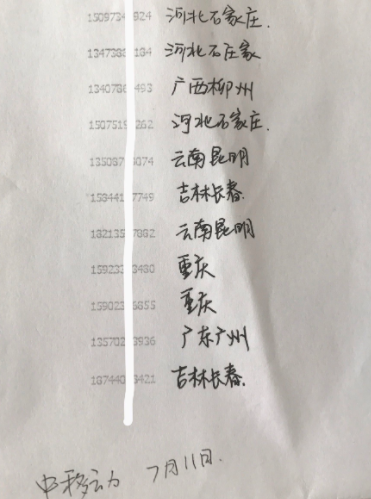 1509734 824 河北石家庄.
1347388 184 河北石庄家
1340786 493 广西柳州
1507519 262 河北石家庄.
135087 6074 云南昆明
15844 7749 吉林长春.
18213 7882 云南昆明
15923 8480 重庆
15902 6855 重庆
13570 8936 广东广州
18744 8421 吉林长春.
中移云力 7月11日.